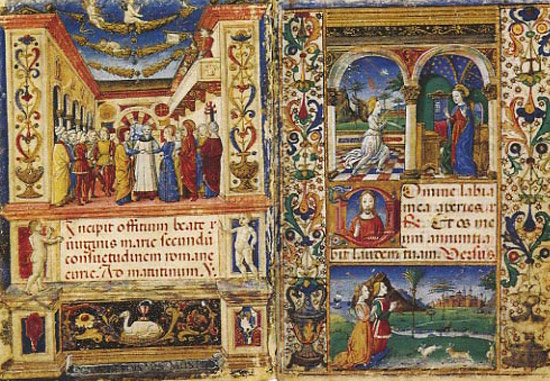 Incipit offitium beate v
irginis marie secundū
consuetudinem romane
curie. Ad matutinum. V.
Domine labia
mea aperies. ℟
Et os me
um annuntia
bit laudem tuam. Versus